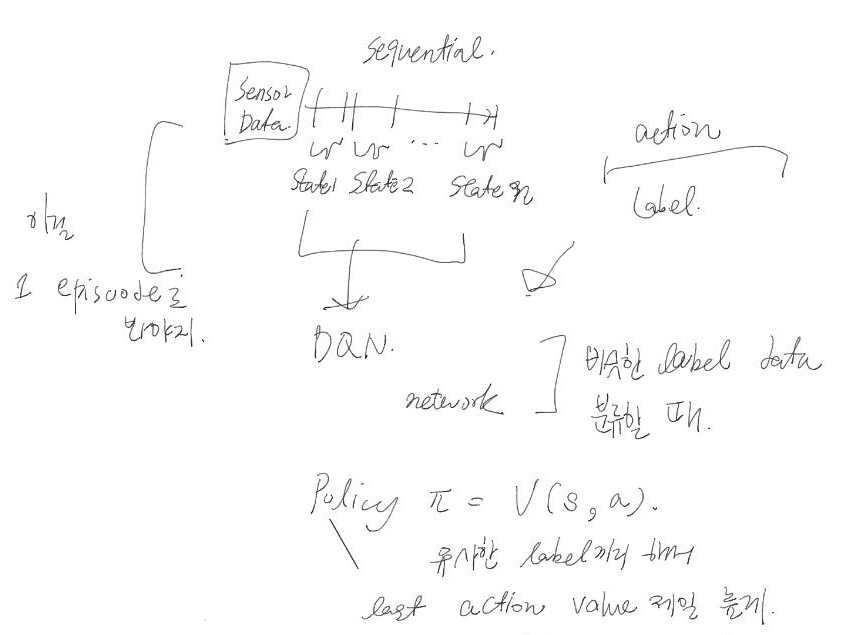 Sequential.
Sensor
Data.
...
State1 State2 State n
action
Label.
1 episode로
봐야지.
DQN.
network
비슷한 label data
분류할 때.
Policy π = V(s, a).
유사한 label끼리 해서
last action value 제일 높게.